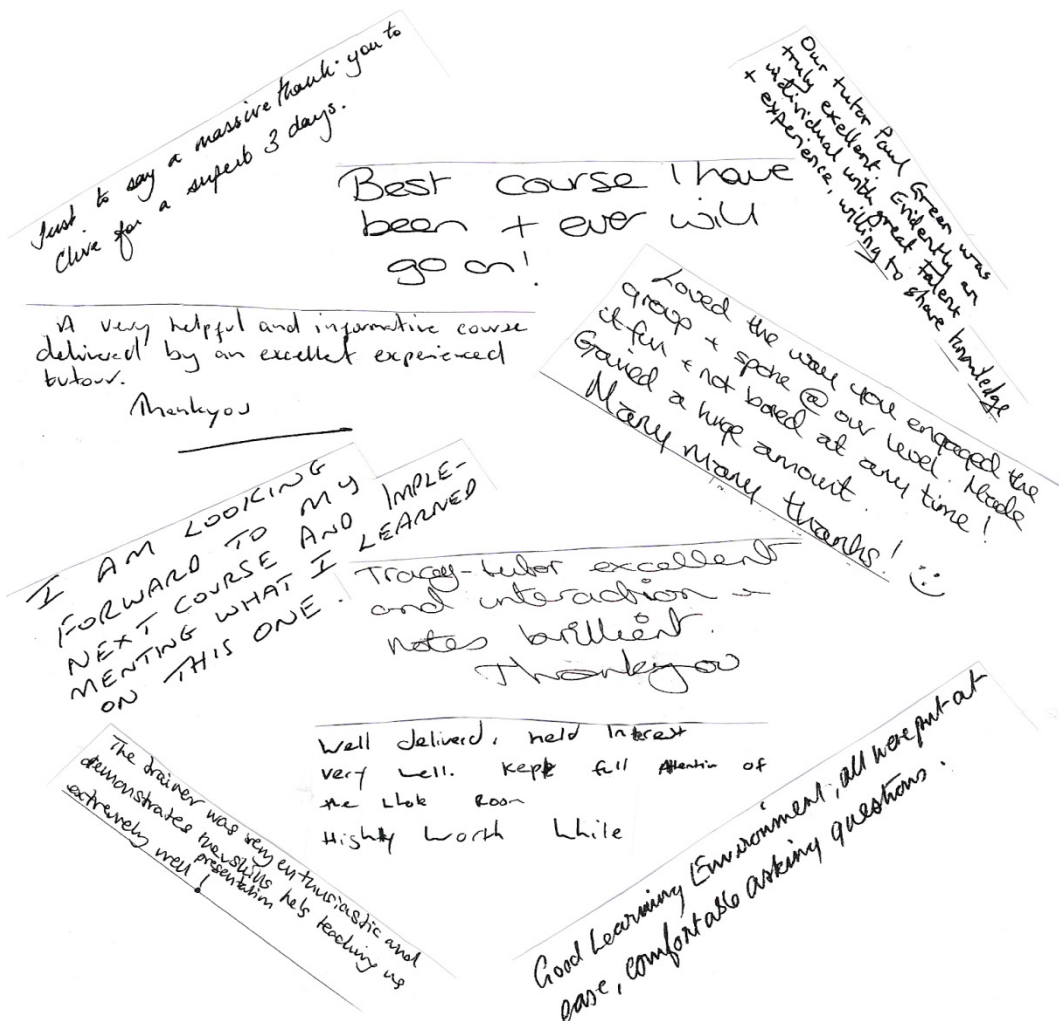 Just to say a massive thank-you to
Clive for a superb 3 days.
Our tutor Paul Green was
truly excellent. Evidently an
individual with great talent
+ experience, willing to share knowledge
Best course I have
been + ever will
go on!
A very helpful and informative course
delivered by an excellent experienced
tutour.
Thankyou
Loved the way you engaged the
group + spoke @ our level. Made
it fun + not bored at any time!
Gained a huge amount.
Many many thanks! :)
I AM LOOKING
FORWARD TO MY
NEXT COURSE AND IMPLE-
MENTING WHAT I LEARNED
ON THIS ONE.
Tracey-tutor excellent
and interaction +
notes brillient.
Thankyou
Well deliverd, held Interest
very well. Kept full Attention of
the whole Room
Highly Worth While
The trainer was very enthusiastic and
demonstrates the skills he's teaching us
presentation
extremely well!
Good Learning Environment, all were put at
ease, comfortable asking questions.